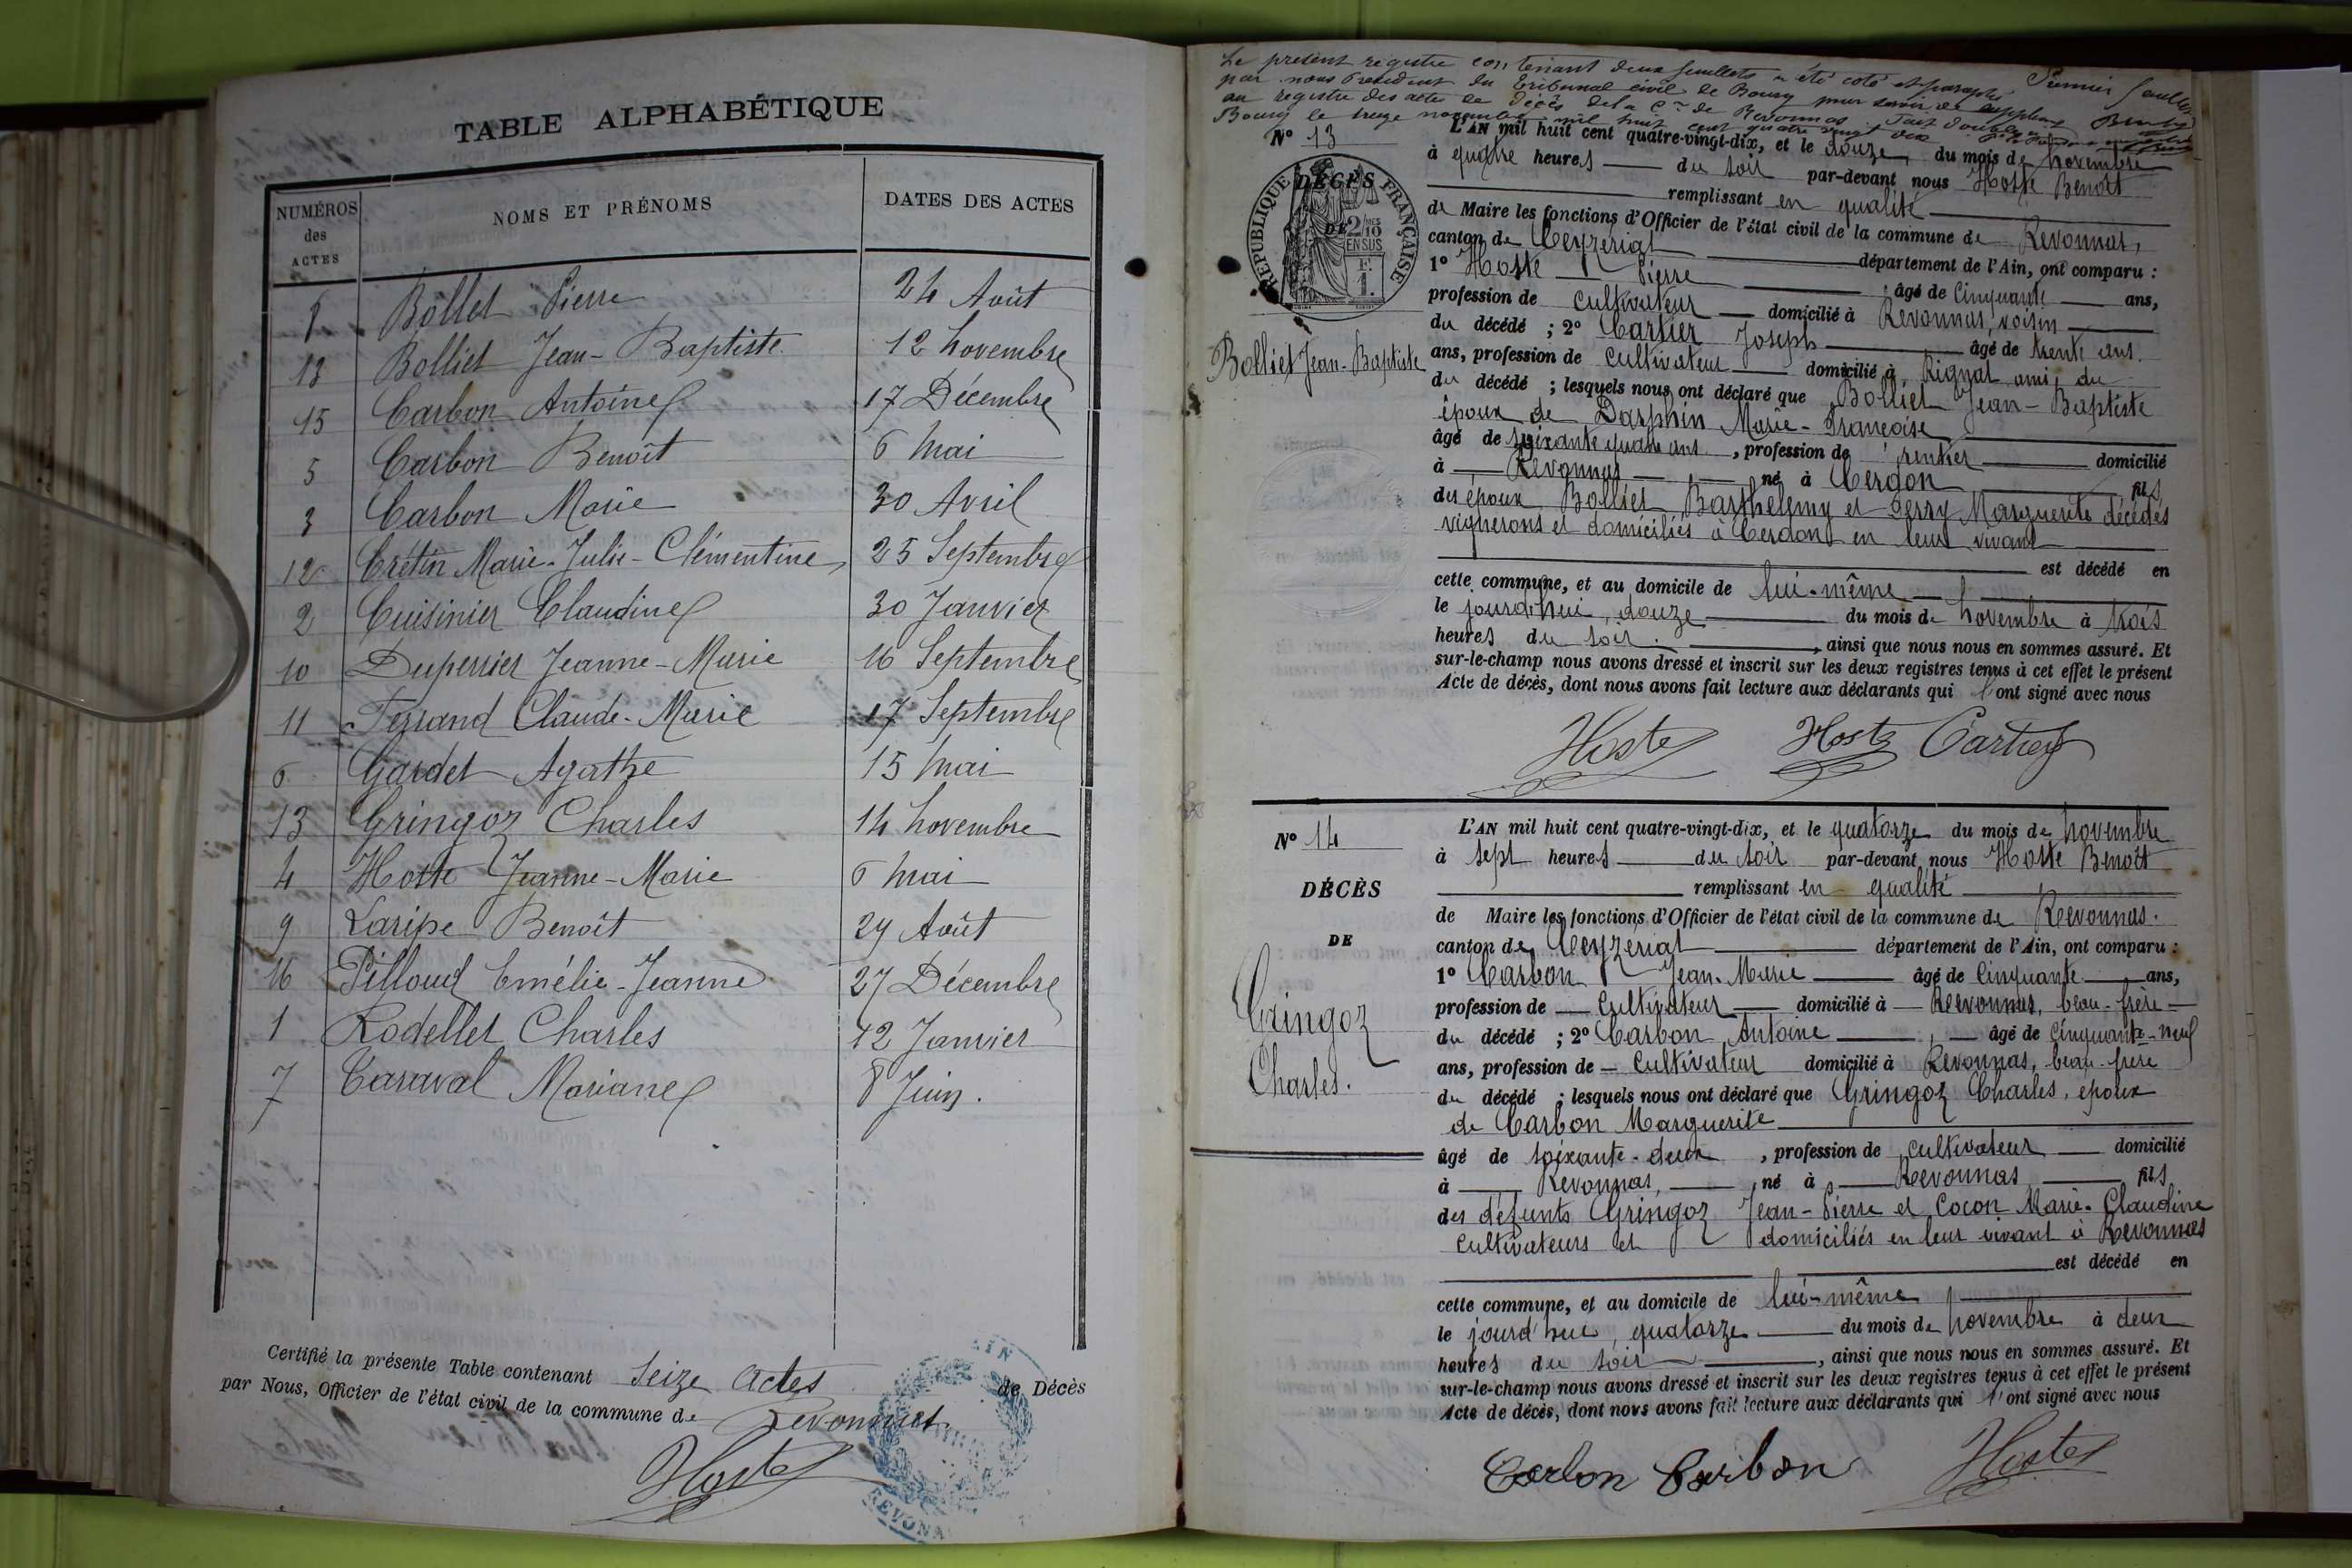 TABLE ALPHABÉTIQUE
NUMÉROS des ACTES NOMS ET PRÉNOMS DATES DES ACTES
8 Bollet Pierre 24 Août
13 Bolliet Jean-Baptiste 12 Novembre
15 Carbon Antoine 17 Décembre
5 Carbon Benoît 6 Mai
3 Carbon Marie 30 Avril
12 Crétin Marie-Julie-Clémentine 25 Septembre
2 Cuisinier Claudine 30 Janvier
10 Duperrier Jeanne-Marie 16 Septembre
11 Ferrand Claude-Marie 17 Septembre
6 Gardet Agathe 15 Mai
13 Gringoz Charles 14 Novembre
4 Hoste Jeanne-Marie 6 Mai
9 Laripe Benoît 29 Août
16 Pilloud Emélie-Jeanne 27 Décembre
1 Rodellet Charles 12 Janvier
7 Taraval Mariane 8 Juin.
Certifié la présente Table contenant Seize actes de Décès
par Nous, Officier de l'état civil de la commune de Revonnas
Hoste
AIN
REVONNA
Le présent registre contenant deux feuillets a été coté et paraphé Premier feuillet
par nous Président du Tribunal civil de Bourg pour servir de supplément
au registre des actes de Décès de la Cne de Revonnas. Fait double à
Bourg le treize novembre mil huit cent quatre vingt dix
N° 13
DÉCÈS
RÉPUBLIQUE FRANÇAISE
DE
2/10 EN SUS
Bolliet Jean-Baptiste
L'AN mil huit cent quatre-vingt-dix, et le douze du mois de Novembre
à quatre heures du soir par-devant nous Hoste Benoît
remplissant en qualité
de Maire les fonctions d'Officier de l'état civil de la commune de Revonnas,
canton de Ceyzériat département de l'Ain, ont comparu :
1° Hoste Pierre âgé de Cinquante ans,
profession de cultivateur domicilié à Revonnas, voisin
du décédé ; 2° Cartier Joseph âgé de trente ans.
ans, profession de cultivateur domicilié à Rignat ami du
du décédé ; lesquels nous ont déclaré que Bolliet Jean-Baptiste
époux de Darphin Marie-Françoise
âgé de soixante quatre ans, profession de rentier domicilié
à Revonnas né à Cerdon fils
des époux Bolliet Barthelemy et Perry Marguerite décédés
vignerons et domiciliés à Cerdon en leur vivant
est décédé en
cette commune, et au domicile de lui-même
le jourd'hui, douze du mois de Novembre à trois
heures du soir. , ainsi que nous nous en sommes assuré. Et
sur-le-champ nous avons dressé et inscrit sur les deux registres tenus à cet effet le présent
Acte de décès, dont nous avons fait lecture aux déclarants qui l'ont signé avec nous
Hoste Hoste Cartier
N° 14
DÉCÈS
DE
Gringoz
Charles.
L'AN mil huit cent quatre-vingt-dix, et le quatorze du mois de Novembre
à sept heures du soir par-devant nous Hoste Benoît
remplissant en qualité
de Maire les fonctions d'Officier de l'état civil de la commune de Revonnas.
canton de Ceyzériat département de l'Ain, ont comparu :
1° Carbon Jean-Marie âgé de Cinquante ans,
profession de Cultivateur domicilié à Revonnas, beau-frère
du décédé ; 2° Carbon Antoine, âgé de Cinquante-neuf
ans, profession de Cultivateur domicilié à Revonnas, beau-frère
du décédé ; lesquels nous ont déclaré que Gringoz Charles, époux
de Carbon Marguerite
âgé de soixante-deux, profession de cultivateur domicilié
à Revonnas, né à Revonnas fils
des défunts Gringoz Jean-Pierre et Cocon Marie-Claudine
cultivateurs et domiciliés en leur vivant à Revonnas
est décédé en
cette commune, et au domicile de lui-même
le jourd'hui, quatorze du mois de Novembre à deux
heures du soir , ainsi que nous nous en sommes assuré. Et
sur-le-champ nous avons dressé et inscrit sur les deux registres tenus à cet effet le présent
Acte de décès, dont nous avons fait lecture aux déclarants qui l'ont signé avec nous
Carbon Carbon Hoste